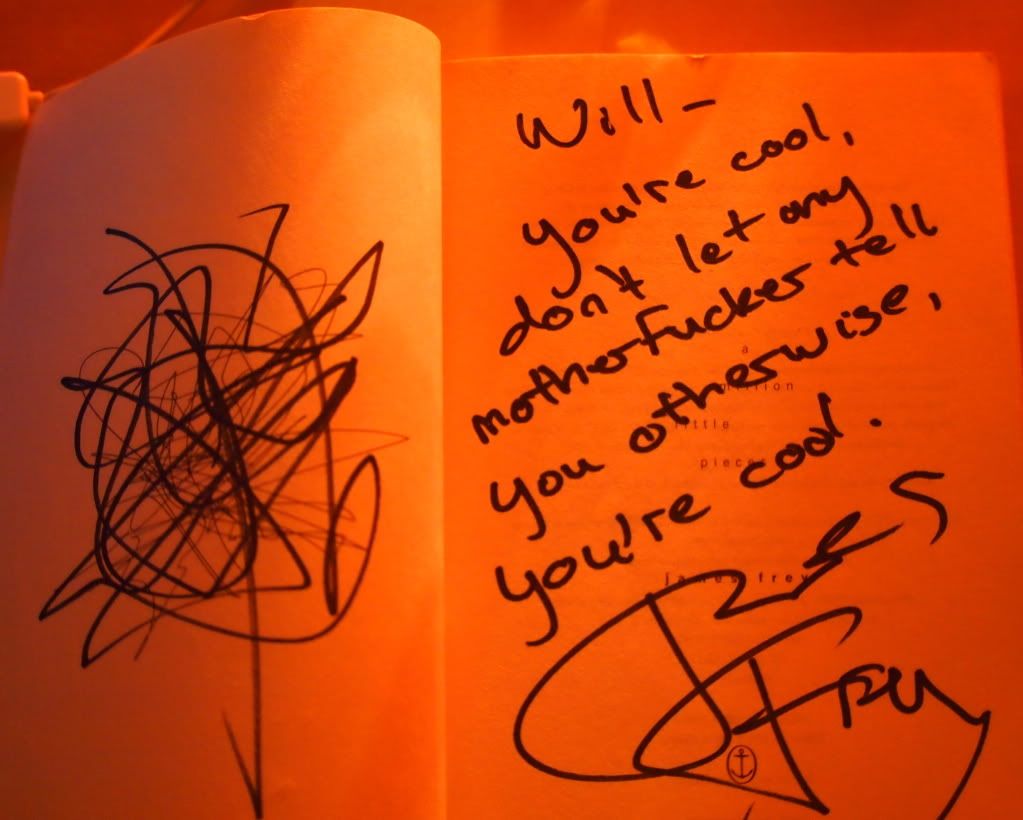 Will-
you're cool,
don't let any
motherfucker tell
you otherwise,
you're cool.
a
million
little
pieces
james frey
James
Frey